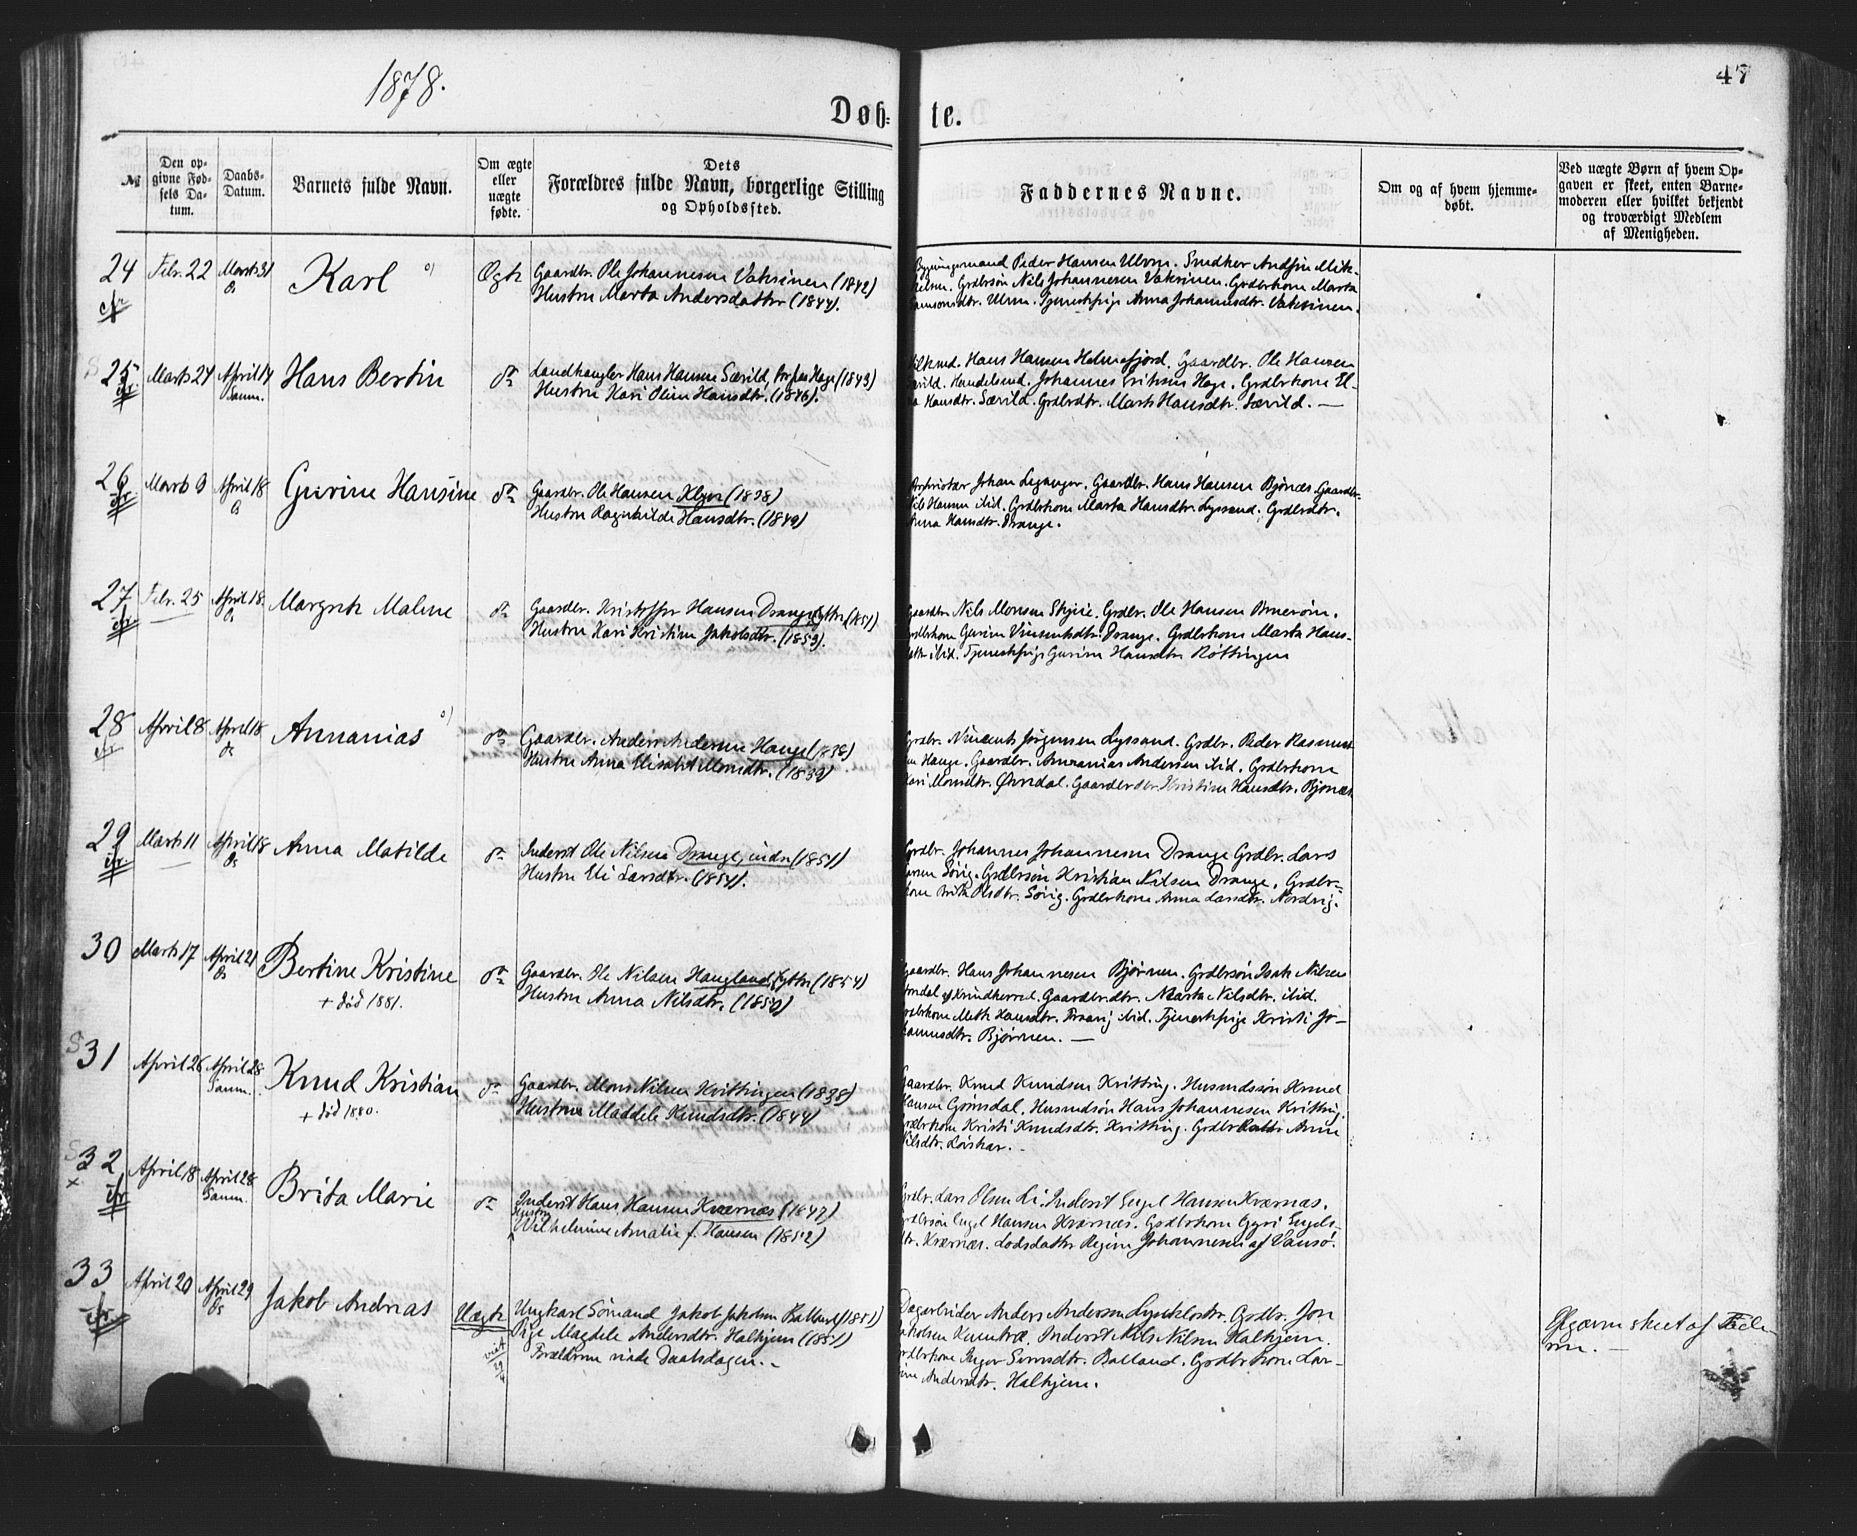 1878.
47
Døb- te.
№
Den opgivne Fødsels Datum.
Daabs-Datum.
Barnets fulde Navn.
Om ægte eller uægte fødte.
Dets Forældres fulde Navn, borgerlige Stilling og Opholdssted.
Faddernes Navne.
Om og af hvem hjemmedøbt.
Ved uægte Børn af hvem Opgaven er skeet, enten Barnemoderen eller hvilket bekjendt og troværdigt Medlem af Menigheden.
24 Febr. 22 Marts 31 Os Karl Ægte
Gaardbr. Ole Johannesen Vaksinen (1842)
Hustru Marta Andersdatter (1844).
Bygningsmand Peder Hansen Ulven. Snedker Andfin Mik-
kelsen. Grdbrsön Nils Johannesen Vaksinen. Grdbrkone Marta
Samsonsdtr. Ulven. Tjenestepige Anna Johannesdtr. Vaksinen.
25 Marts 24 April 14 Samm. Hans Bertin do
Landhandler Hans Hansen Særild, (1843)
Hustru Kari Oline Hansdtr. (1846).
Hans Hansen Holmefjord. Gaardbr. Ole Hansen
Særild. Handelsmd. Johannes Eriksen Hage. Grdbrkone El-
Hansdtr. Særild. Grdbrdtr. Marta Hansdtr. Særild. —
26 Marts 9 April 18 Os Gurine Hansine do
Gaardbr. Ole Hansen (1838)
Hustru Ragnhilde Hansdtr. (1849)
Johan Leganger. Gaardbr. Hans Hansen Bjønæs. Gaardbr.
Nils Hansen ibid. Grdbrkone Marta Hansdtr. Lyssand. Grdbrdtr.
Anna Hansdtr. Drange.
27 Febr. 25 April 18 Os Margrete Malene do
Gaardbr. Kristoffer Hansen Drange, ytter (1851)
Hustru Kari Kristine Jakobsdtr. (1853).
Gaardbr. Nils Monsen Skjeie. Grdbr. Ole Hansen
Grdbrkone Gurine Vincentsdtr. Drange. Grdbrkone Marta Hans-
datter ibid. Tjenestepige Gurine Hansdtr. Røttingen
28 April 8 April 18 Os Annanias do
Gaardbr. Anders Andersen Hauge (1838)
Hustru Anna Elisabet Monsdtr. (1839)
Grdbr. Vincents Jørgensen Lyssand. Grdbr. Peder Rasmus-
sen Hauge. Gaardbr. Annanias Andersen ibid. Grdbrkone
Kari Monsdtr. Øvredal. Gaardbrdtr. Kristine Hansdtr. Bjønæs.
29 Marts 11 April 18 Os Anna Matilde do
Inderst Ole Nilsen Drange, indre (1851)
Hustru Eli Larsdtr. (1854).
Grdbr. Johannes Johannesen Drange Grdbr. Lars
Larsen Søvig. Grdbrsön Kristian Nilsen Drange. Grdbr-
kone Brita Olsdtr. Søvig. Grdbrkone Anna Larsdtr. Nordvig.
30 Marts 17 April 21 Os Bertine Kristine do
+ død 1881.
Gaardbr. Ole Nilsen Haugland, ytter (1854)
Hustru Anna Nilsdtr. (1850)
Gaardbr. Hans Johannesen Bjørnen. Grdbrsön Isak Nilsen
Gaardbrdtr. Marta Nilsdtr. ibid.
Grdbrkone Mette Hansdtr. ibid. Tjenestepige Kristi Jo-
hannesdtr. Bjørnen. —
31 April 26 April 28 Samm. Knud Kristian do
+ død 1880.
Gaardbr. Mons Nilsen Kvittingen (1838)
Hustru Maddele Knudsdtr. (1844)
Gaardbr. Knud Knudsen Kvitting. Husmdssön Knud
Hansen Gjønsdal. Husmdsön Hans Johannesen Kvitting.
Grdbrkone Kristi Knudsdtr. Kvitting. Grdbrdatter Anne
Nilsdtr.
32 April 18 April 28 Samm. Brita Marie do
Inderst Hans Hansen Kværnæs (1847)
Hustru Wilhelmine Amalie f. Hansen (1852)
Grdbr. Lars Olsen Li. Inderst Engel Hansen Kværnæs.
Grdbrsön Engel Hansen Kværnæs. Grdbrkone Gyri Engels-
dtr. Kværnæs. Lodsdatter Regine Johannesen af Vansø.
33 April 20 April 29 Os Jakob Andreas Uægte
Ungkarl Sømand Jakob Jakobsen Balland (1851)
Pige Magdele Andersdtr. Halhjem (1851)
Forældrene viede Daabsdagen. —
Dagarbeider Anders Andersen Lyseklostr. Grdbr. Jon
Jakobsen Inderst Nils Nilsen Halhjem.
Grdbrkone Inger Simsdtr. Balland. Grdbrkone Lov-
ise Andersdtr. Halhjem.
Opgaven skeet af Fade-
ren. —